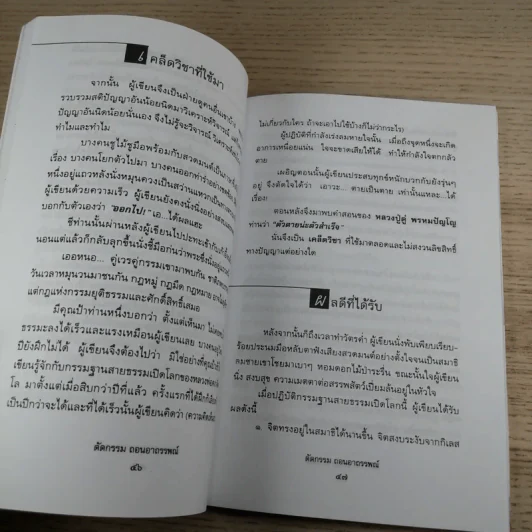 เคล็ดวิชาที่ใช้มา
จากนั้น ผู้เขียนจึงเป็นฝ่ายดูคนอื่นเขาบ้าง
รวบรวมสติปัญญาอันน้อยนิดมาวิเคราะห์วิจารณ์
ปัญญาอันนิดน้อยนั่นเอง จึงไม่รู้จะวิจารณ์
ทำไมและทำไม
บางคนชูไม้ชูมือพร้อมกับสวดมนต์เป็นภาษา
เรื่อง บางคนโยกตัวไปมา บางคนออกท่ารำอย่าง
หนึ่งอยู่แถวหลังนั่งหมุนควงเป็นสว่านแหวกเป็นทาง
ผู้เขียนด้วยความเร็ว ผู้เขียนยังคงนั่งนิ่งอย่างสงบ
บอกกับตัวเองว่า "ออกไป! เอ...ได้ผลแฮะ
ชีท่านนั้นผ่านหลังผู้เขียนไปปะทะเข้ากับ
นอนแต่แล้วก็กลับลุกขึ้นนั่งชี้มือก่นว่าพระซึ่งนั่งอยู่
เออหนอ... คู่เวรคู่กรรมเขามาพบกัน
วันเวลาหมุนวนมาชนกัน กฎหมู่ กฎมืด กฎหมาย
แต่กฎแห่งกรรมยุติธรรมและศักดิ์สิทธิ์เสมอ
มีคุณป้าท่านหนึ่งบอกว่า ตั้งแต่เห็นมา
ธรรมะลงได้เร็วและแรงเหมือนผู้เขียนเลย บางคน
ปียังฝึกไม่ได้ ผู้เขียนจึงต้องไปว่า มิใช่อย่างที่คุณป้า
เขียนรู้จักกับกรรมฐานสายธรรมเปิดโลกของหลวง
โล มาตั้งแต่เมื่อสิบกว่าปีที่แล้ว ครั้งแรกที่ได้ฝึก
เป็นปีกว่าจะได้และที่ได้เร็วนั้นผู้เขียนคิดว่า
ตัดกรรม ถอนอาถรรพณ์
๔๖
ไม่เกี่ยวกับใคร ถ้าจะเอาไปใช้บ้างก็ไม่ว่ากระไร)
ผู้ปฏิบัติที่กำลังเร่งลมหายใจนั้น เมื่อถึงจุดหนึ่งจะเกิด
อาการเหนื่อยแน่น ใจจะขาดเสียให้ได้ ทำให้กำลังใจตกกลัว
ตาย
เผอิญตอนนั้นผู้เขียนประสบทุกข์หนักบวกกับยังรุ่นๆ
อยู่ จึงตัดใจได้ว่า เอาวะ... ตายเป็นตาย เท่านั้นแหละ...ได้
เรื่อง!
ตอนหลังจึงมาพบคำสอนของ หลวงปู่ดู่ พรหมปัญโญ
ท่านว่า "ตัวตายน่ะตัวสำเร็จ"
นั่นจึงเป็น เคล็ดวิชา ที่ใช้มาตลอดและไม่สงวนลิขสิทธิ์
ทางปัญญาแต่อย่างใด
ผลดีที่ได้รับ
หลังจากนั้นก็ถึงเวลาทำวัตรค่ำ ผู้เขียนนั่งพับเพียบเรียบ-
ร้อยประนมมือหลับตาฟังเสียงสวดมนต์อย่างตั้งใจจนเป็นสมาธิ
ลมชายเขาโชยมาเบาๆ หอมดอกไม้ป่าระรื่น ขณะนั้นใจผู้เขียน
นิ่ง สงบสุข ความเมตตาต่อสรรพสัตว์เปี่ยมล้นอยู่ในหัวใจ
เมื่อปฏิบัติกรรมฐานสายธรรมเปิดโลกนี้ ผู้เขียนได้รับ
ผลดังนี้
๑. จิตทรงอยู่ในสมาธิได้นานขึ้น จิตสงบระงับจากกิเลส
ตัดกรรม ถอนอาถรรพณ์
๔๗